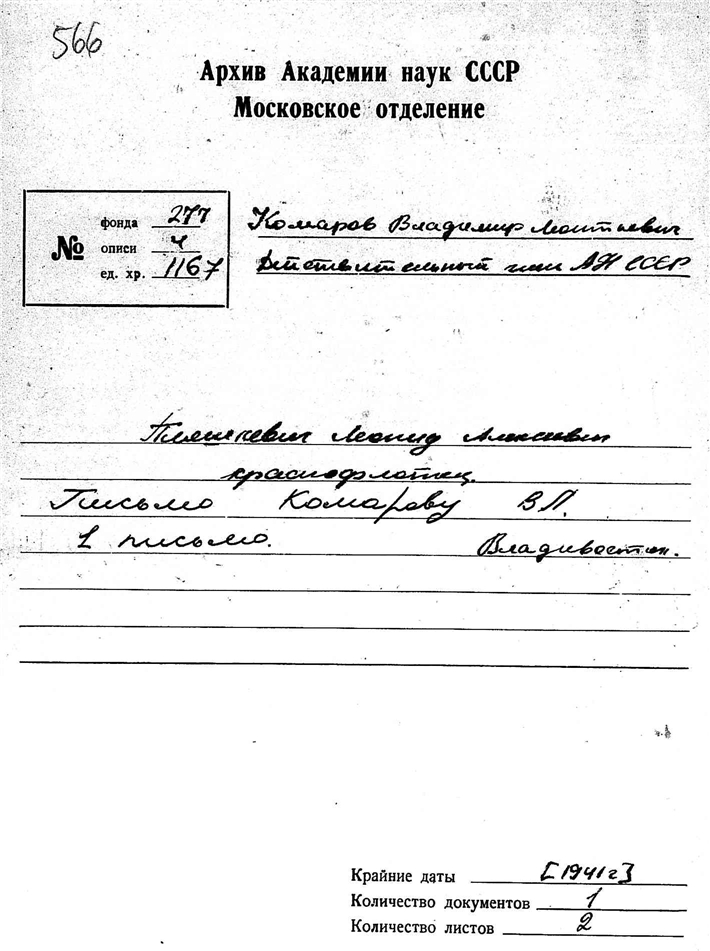 566
Архив Академии наук СССР
Московское отделение
№
фонда 277
описи 4
ед. хр. 1167
Комаров Владимир Леонтьевич
Действительный член АН СССР
Пляшкевич Леонид Алексеевич
краснофлотец.
Письмо Комарову В.Л.
1 письмо. Владивосток.
Крайние даты [1941г]
Количество документов 1
Количество листов 2